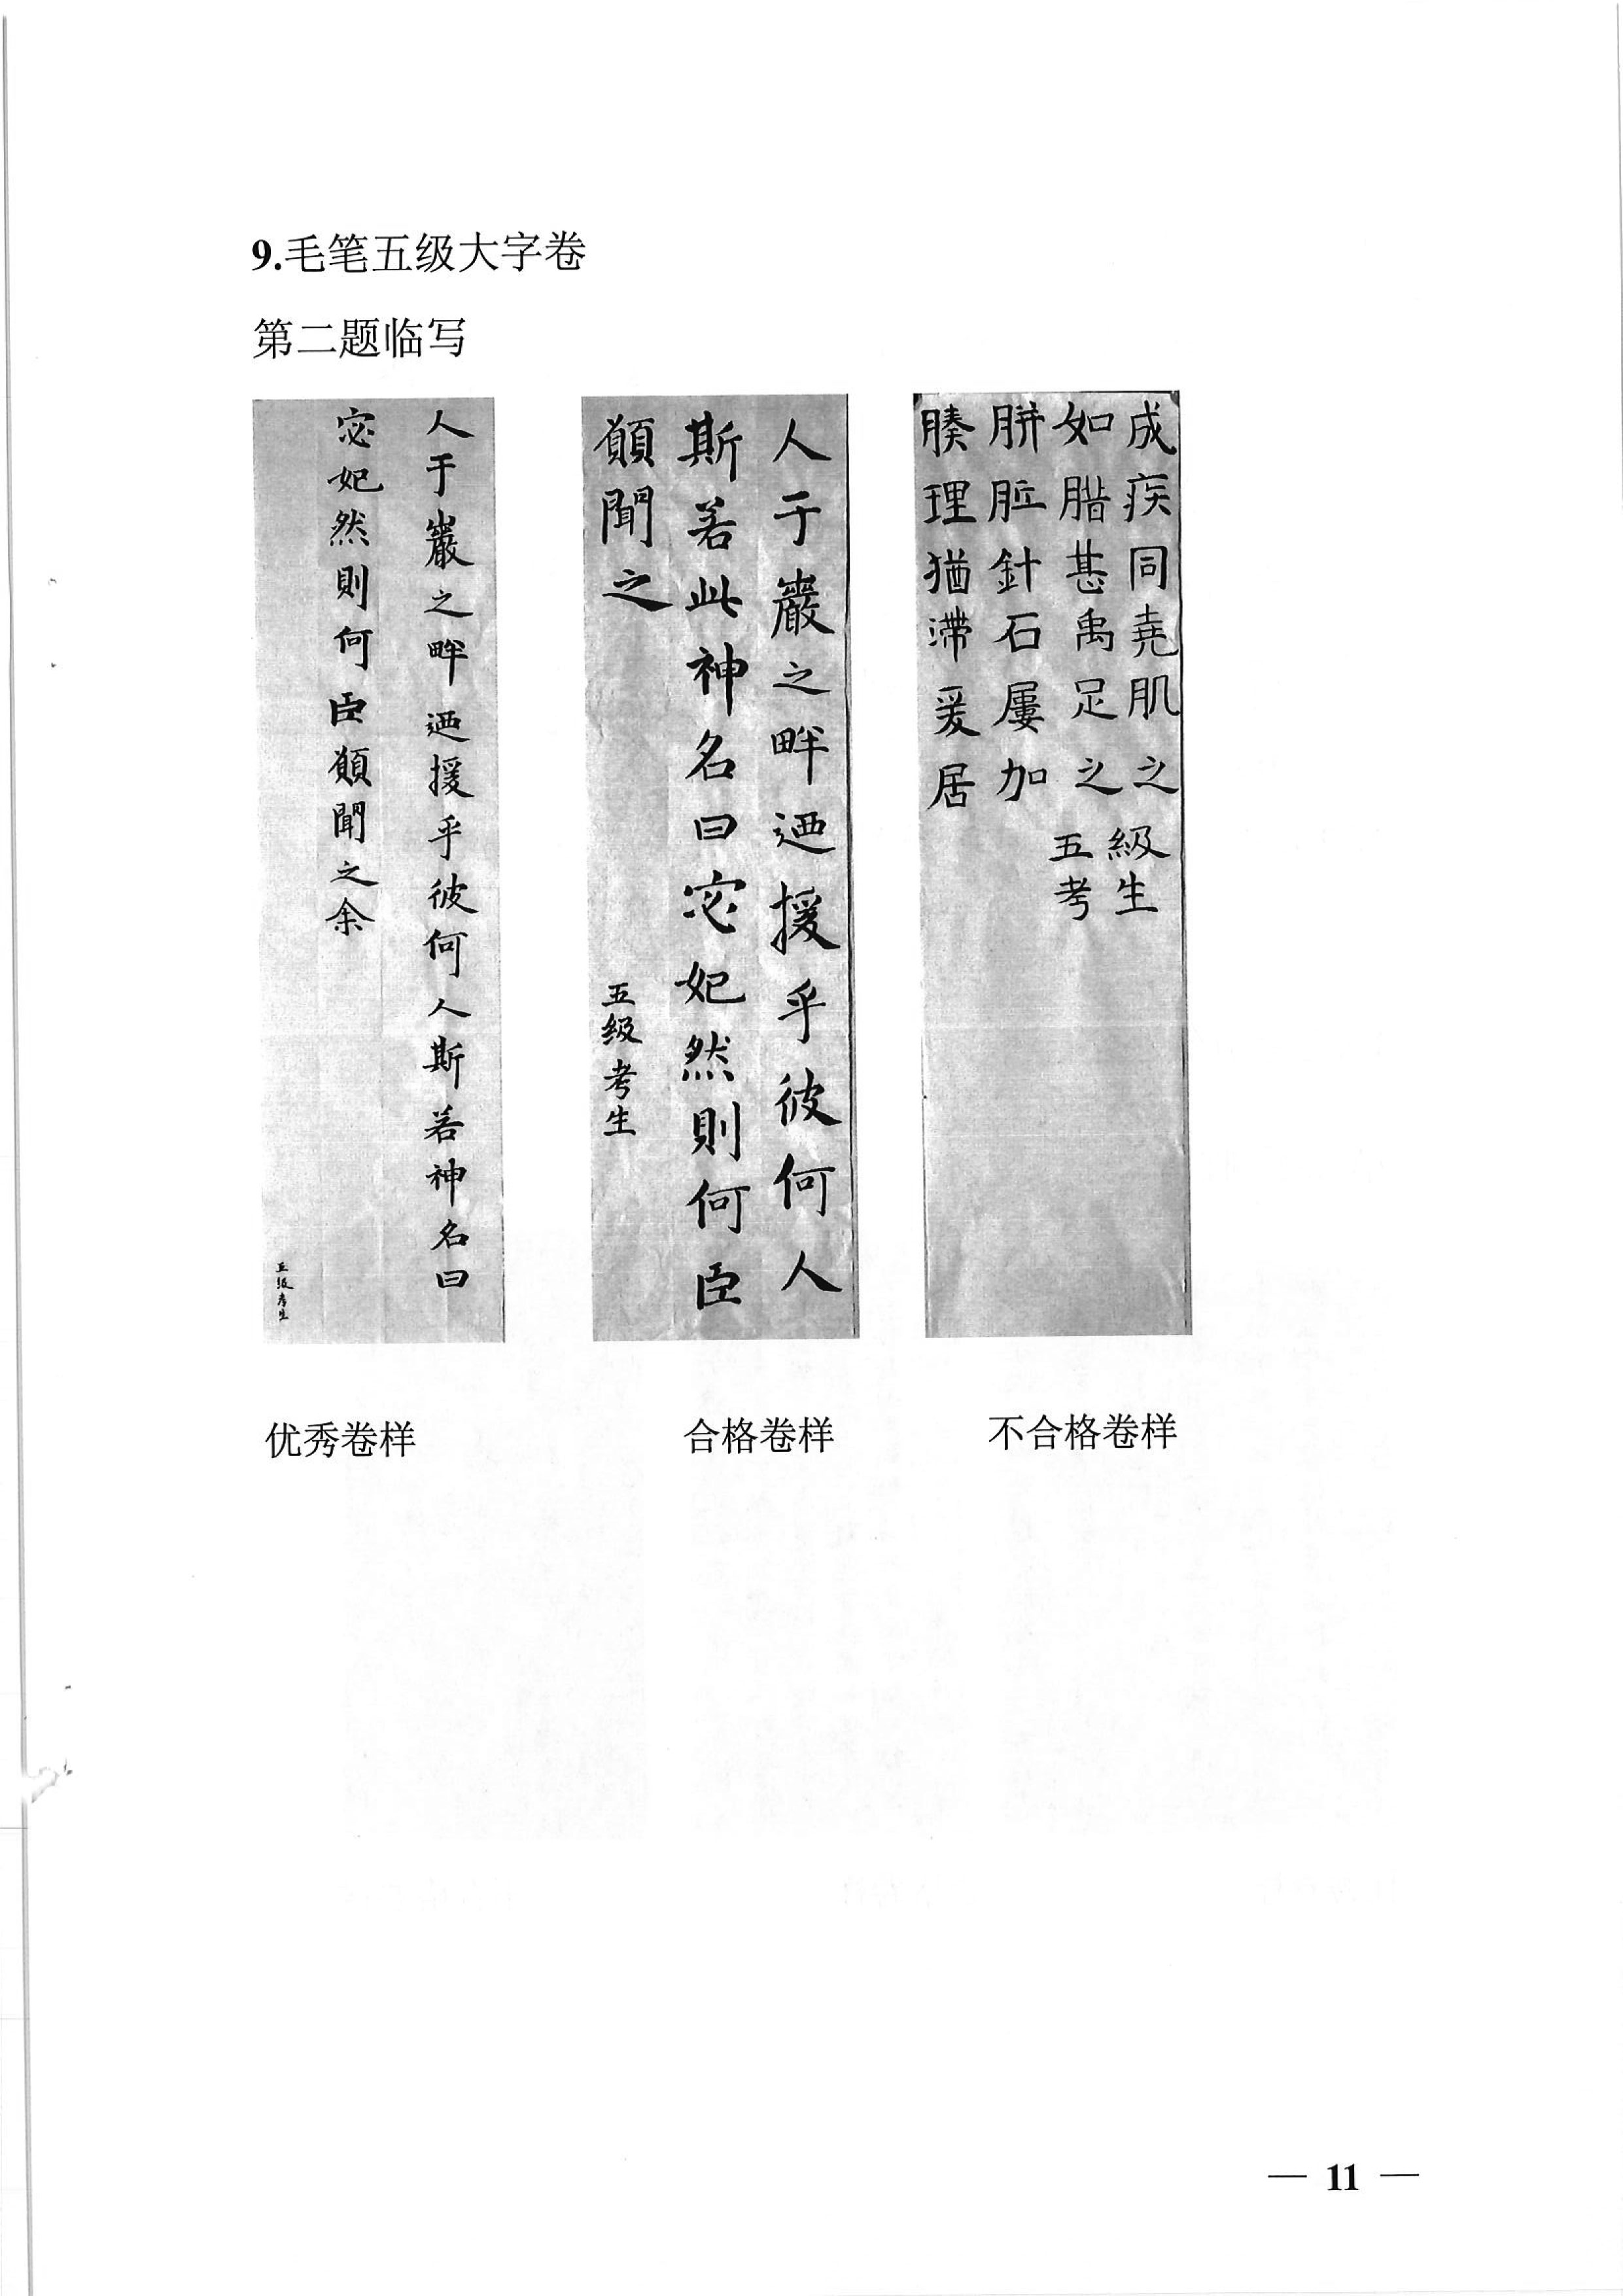 9.毛笔五级大字卷
第二题临写
人于巖之畔迺援乎彼何人斯若神名曰
宓妃然則何臣願聞之余
五级考生
人于巖之畔迺援乎彼何人
斯若此神名曰宓妃然則何臣
願聞之
五级考生
成疾同堯肌之
如腊甚禹足之
胼胝針石屢加
腠理猶滯爰居
級生
五考
优秀卷样
合格卷样
不合格卷样
— 11 —